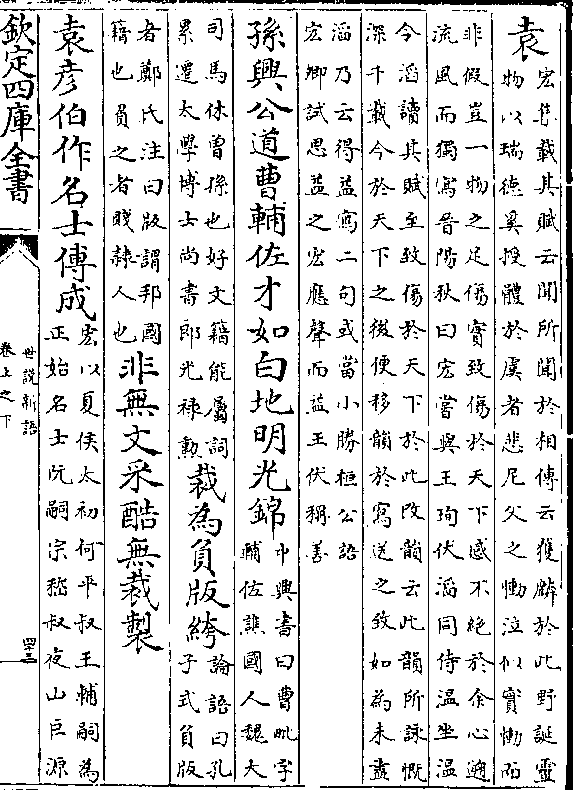 袁
宏集載其賦云聞所聞於相傳云獲麟於此野誕靈
物以瑞德奚授體於虞者悲尼父之慟泣似實慟而
非假豈一物之足傷實致傷於天下感不絕於余心遡
流風而獨寫晉陽秋曰宏嘗與王珣伏滔同侍温坐温
今滔讀其賦至致傷於天下於此改韻云此韻所詠慨
深千載今於天下之後便移韻於寫送之致如為未盡
滔乃云得益寫二句或當小勝桓公語
宏卿試思益之宏應聲而益王伏稱善
孫興公道曹輔佐才如白地明光錦
中興書曰曹毗字
輔佐譙國人魏大
司馬休曽孫也好文籍能屬詞
累遷太學博士尚書郎光祿勲
裁為負版絝
論語曰孔
子式負版
者鄭氏注曰版謂邦國
籍也負之者賤隸人也
非無文采酷無裁製
袁彥伯作名士傳成
宏以夏侯太初何平叔王輔嗣為
正始名士阮嗣宗嵇叔夜山巨源
欽定四庫全書
世説新語
卷上之下
四十三